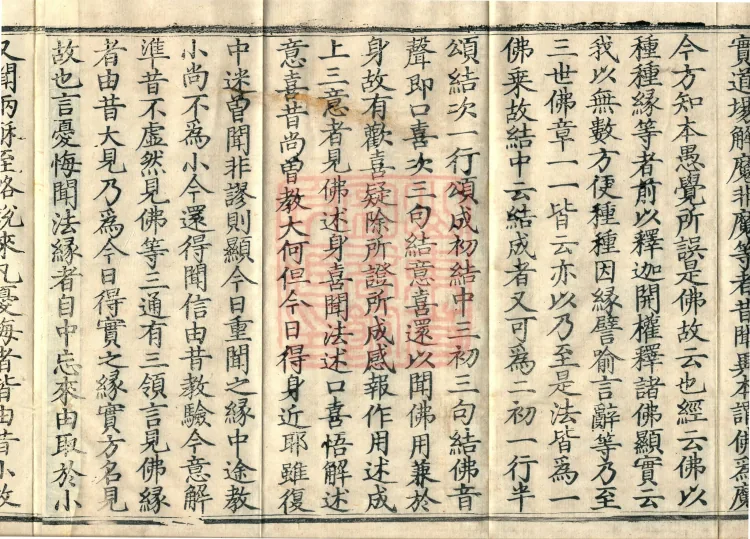 實道場解魔非魔等者昔聞異本謂佛爲魔
今方知本愚覺所誤是佛故云也經云佛以
種種縁等者前以釋迦開權釋諸佛顯實云
我以無數方便種種因縁譬喻言辭等乃至
三世佛章一一皆云亦以乃至是法皆爲一
佛乗故結中云結成者又可爲二初一行半
頌結次一行頌成初結中三初三句結佛音
聲即口喜次三句結意喜還以聞佛用兼於
身故有歡喜疑除所證所成感報作用述成
上三意者見佛述身喜聞法述口喜悟解述
意喜昔尚曾教大何但今日得身近耶雖復
中迷曽聞非謬則顯今日重聞之縁中途教
小尚不爲小今還得聞信由昔教驗今意解
準昔不虚然見佛等三通有三領言見佛縁
者由昔大見乃爲今日得實之縁實方名見
故也言憂悔聞法縁者自中忘來由取於小
又聞丙酥至略說來凡憂悔者皆由昔小教